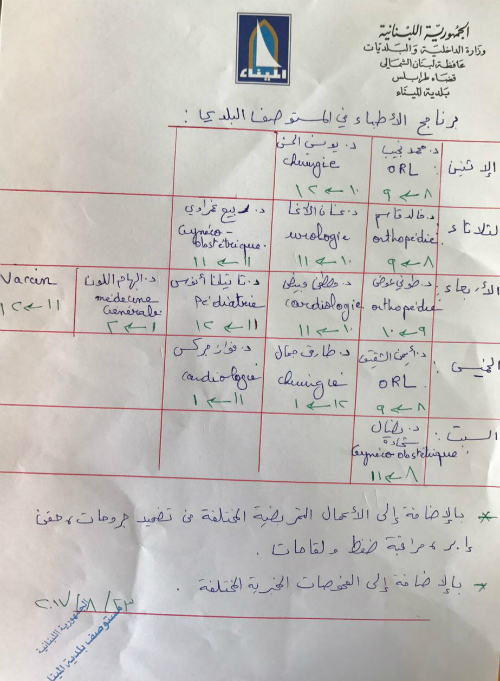 الجمهورية اللبنانية
وزارة الداخلية والبلديات
محافظة لبنان الشمالي
قضاء طرابلس
بلدية الميناء
الميناء
برنامج الأطباء في المستوصف البلدي :
الإثنين :
د. محمد نجيب
ORL
٨ → ٩
د. يوسف
chirurgie
١٠ → ١٢
الثلاثاء :
د. خالد قاسم
orthopédie
٨ → ٩
د. عدنان الآغا
urologie
١٠ → ١١
د. ربيع
Gynéco-
obstétrique
١١ → ١١
الأربعاء :
د. طوني عوض
orthopédie
٩ → ١٠
د. مصطفى
cardiologie
١٠ → ١١
د.
Pédiatrie
١١ → ١٢
د. الهام
médecine
Générale
١ → ٢
Vaccin
١١ → ١٢
الخميس :
د.
ORL
٨ → ٩
د. طارق جمال
chirurgie
١٢ → ١
د. فواز جركس
cardiologie
١١ → ١
السبت :
د. نضال
شحادة
Gynéco obstétrique
٨ → ١١
* بالإضافة إلى الأعمال التمريضية المختلفة من تضميد جروحات، حقن
إبر، مراقبة ضغط ولقاحات .
* بالإضافة إلى الفحوصات المخبرية المختلفة .
٢٠١٧/٨/٢٣
الجمهورية اللبنانية
مستوصف بلدية الميناء